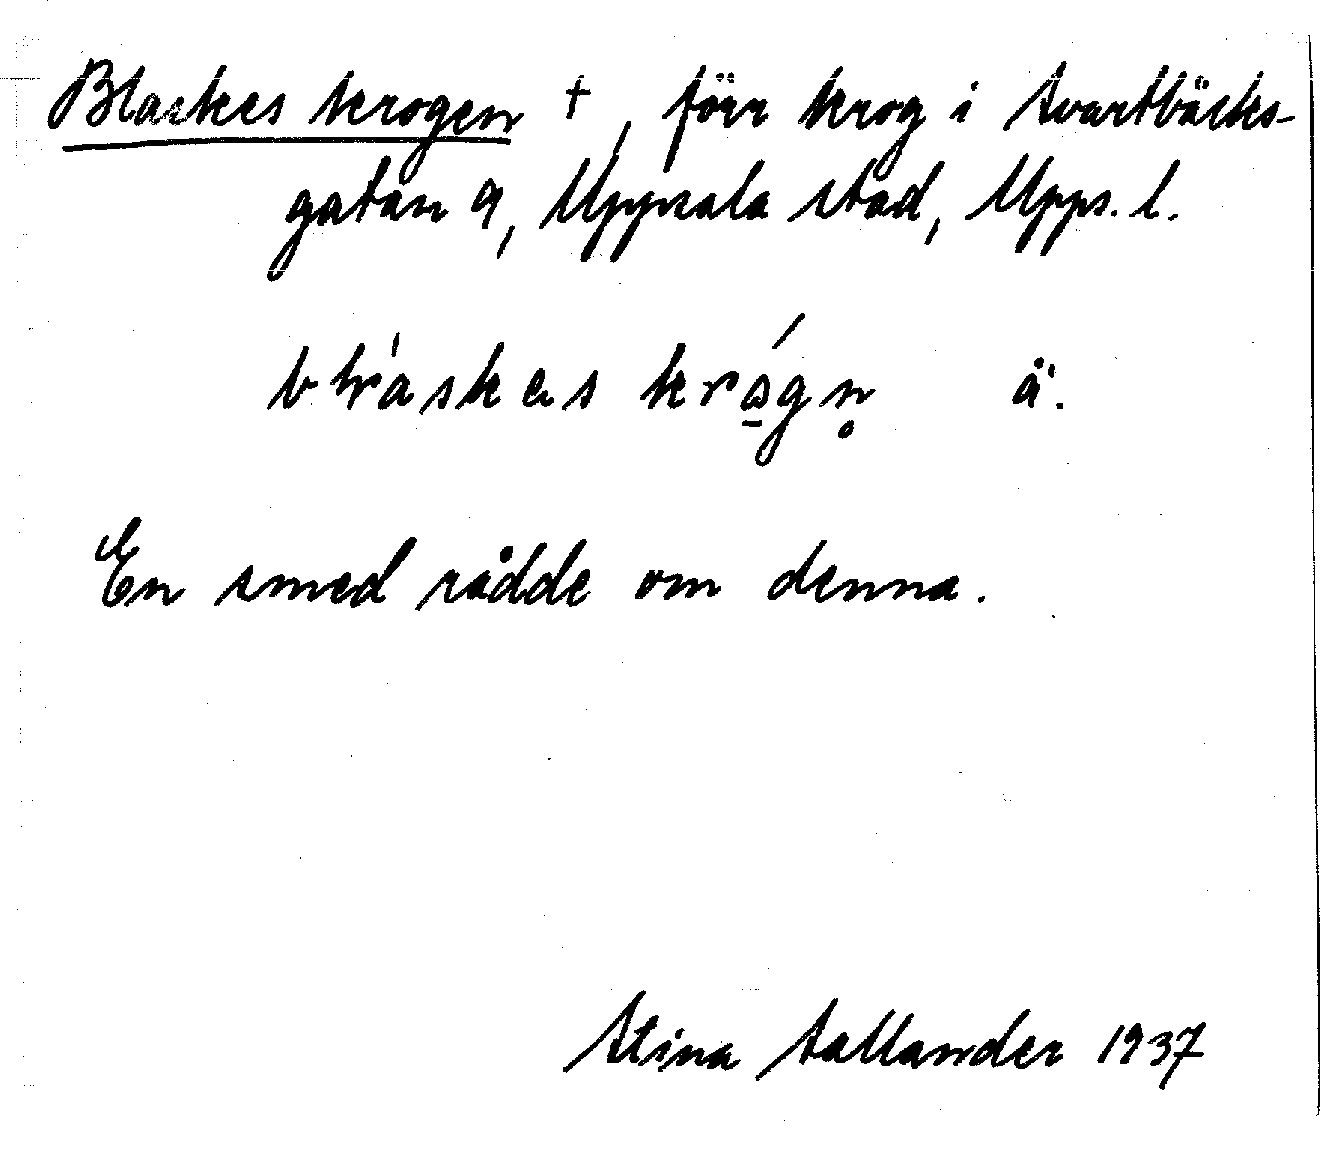 Blaskes krogen †, förr krog i Svartbäcks-
gatan 9, Uppsala stad, Upps. l.
En smed rådde om denna.
Stina Sallander 1937